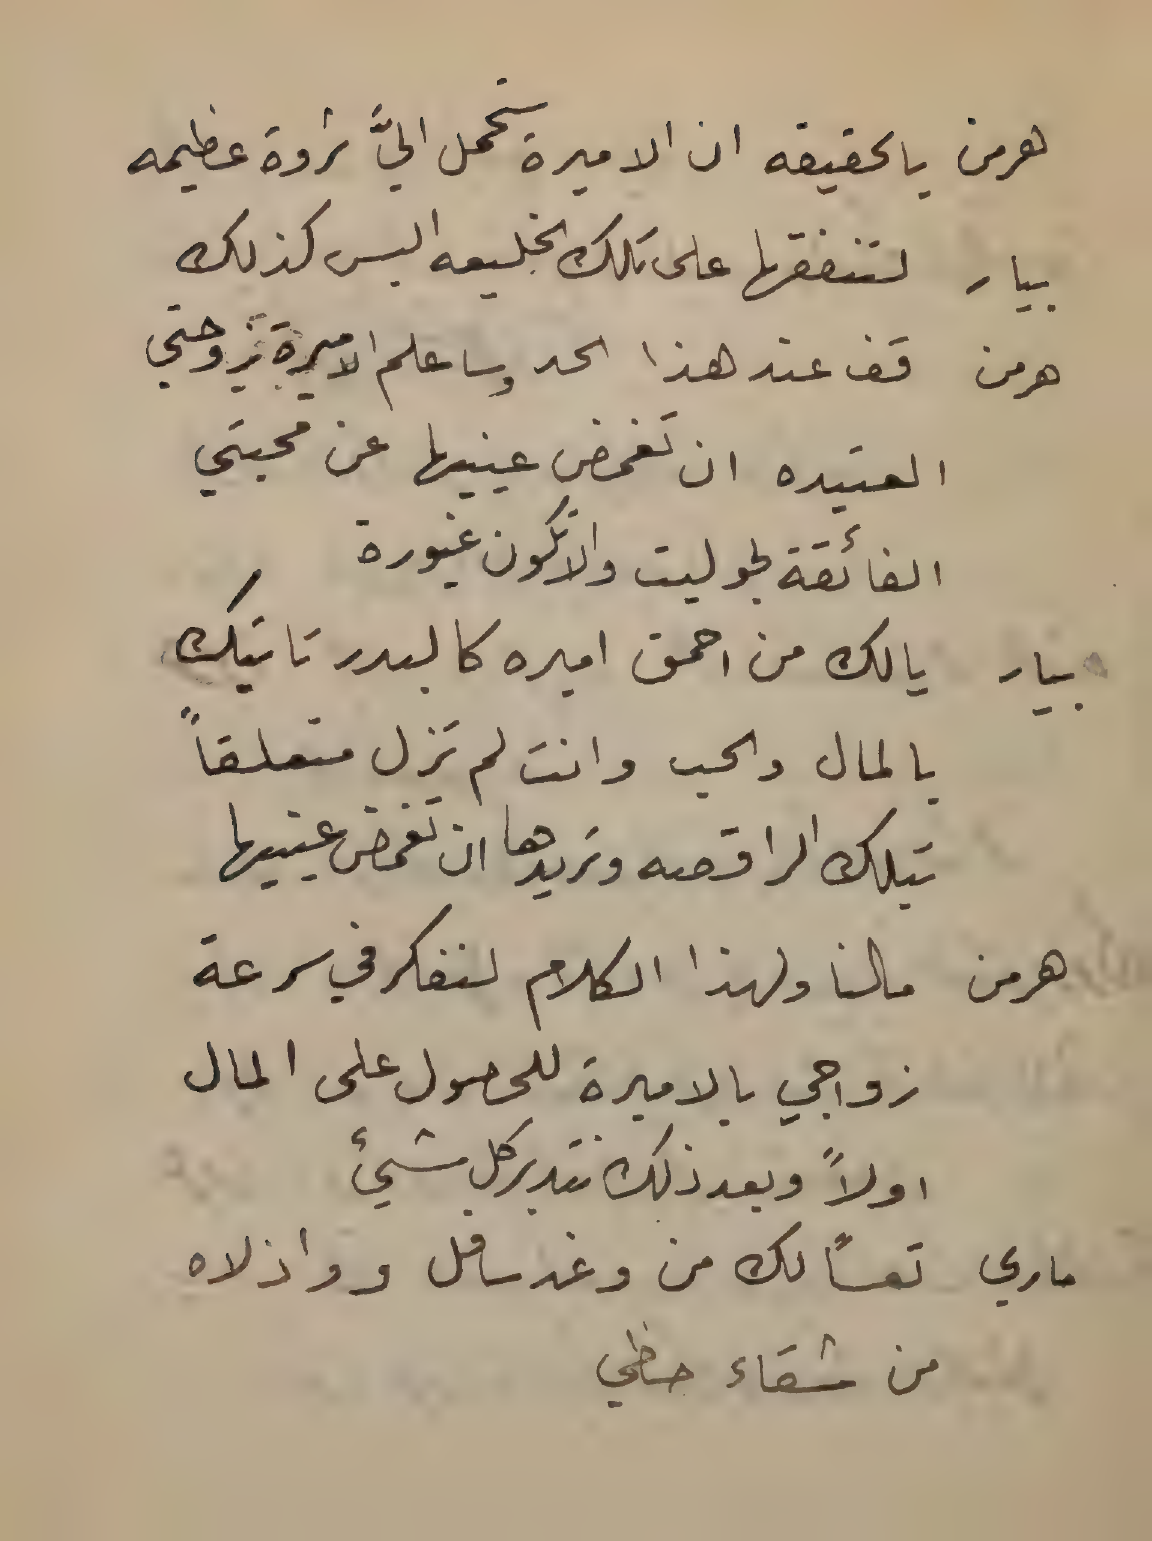 هرمن بالحقيقه ان الاميرة ستحمل اليَّ ثروة عظيمه
بيار لتنفقها على تلك الخليعه اليس كذلك
هرمن قف عند هذا الحد وساعلم الاميرة زوجتي
العتيده ان تغمض عينيها عن محبتي
الفائقة لجوليت والا تكون غيورة
بيار يالك من احمق اميره كالبدر تاتيك
بالمال والحب وانت لم تزل متعلقاً
بتلك الراقصه وتريدها ان تغمض عينيها
هرمن مالنا ولهذا الكلام لنفكر في سرعة
زواجي بالاميرة للحصول على المال
اولاً وبعد ذلك نتدبر كل شيئ
ماري تعساً لك من وغد سافل وواذلاه
من شقاء حظي